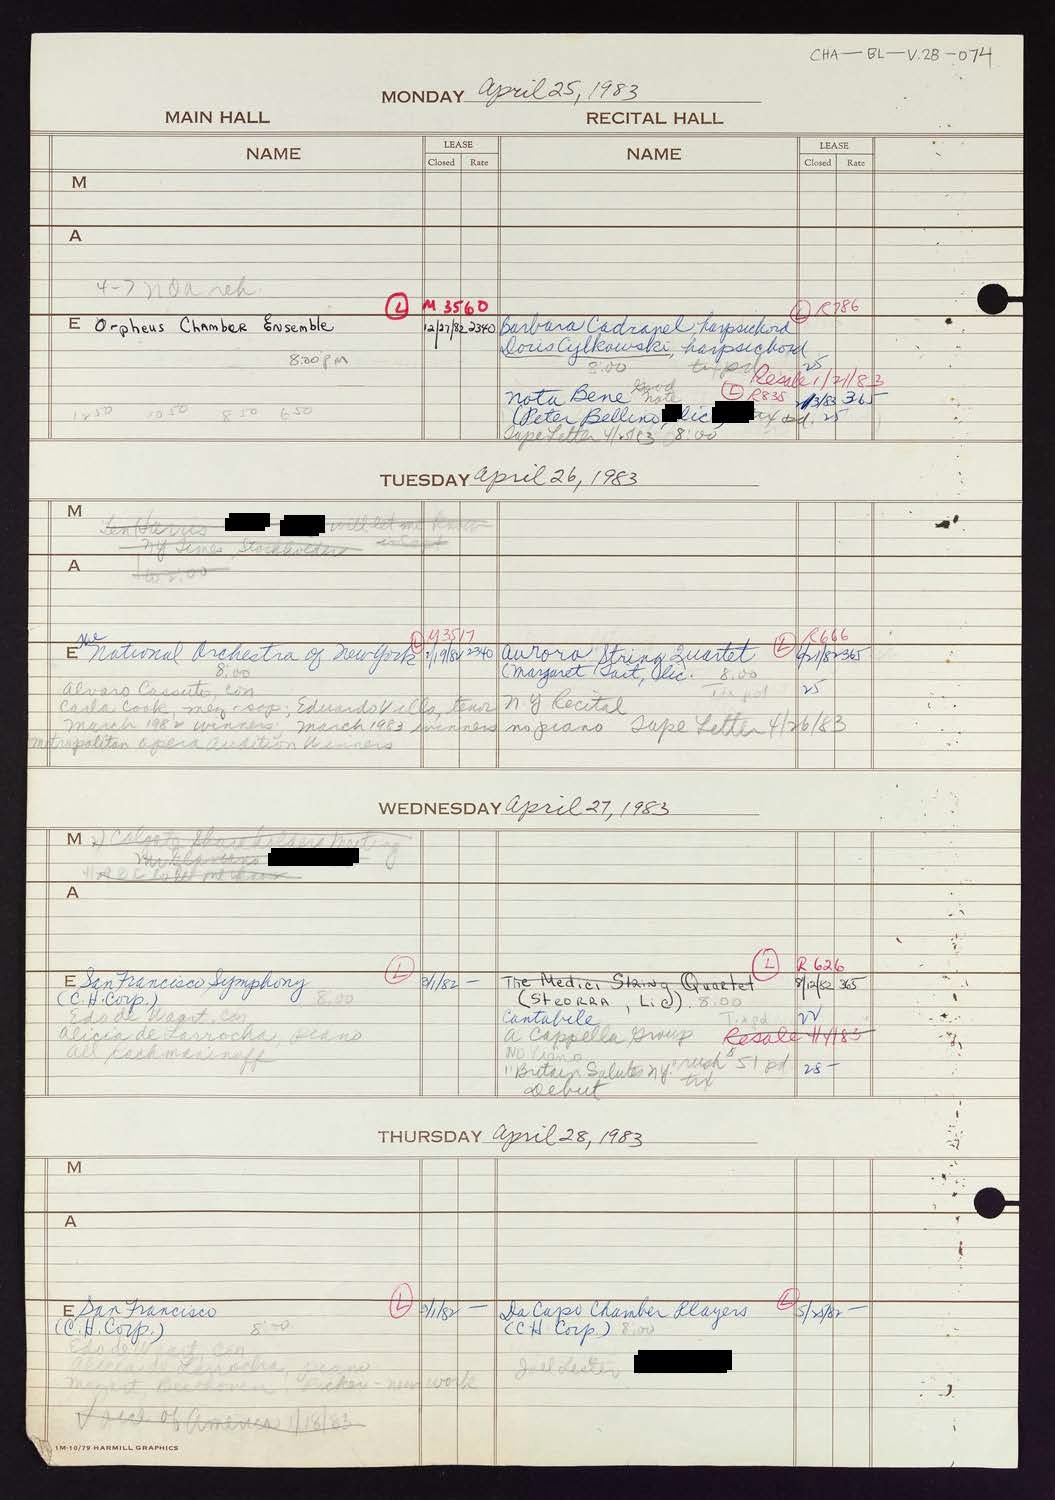 CHA—BL—V.28—074
MONDAY April 25, 1983
MAIN HALL RECITAL HALL
NAME LEASE NAME LEASE
Closed Rate Closed Rate
M
A
4-7 NOA reh.
L M 3560 L R786
E Orpheus Chamber Ensemble 12/27/82 2340 Barbara Cadranel, harpsichord
Doris Cylkowski, harpsichord
8:00 PM 8:00 25
Resale 1/21/83
Nota Bene Good Note L R835 1/3/83 365
(Peter Bellino, Lic, pd. 25
Tape Letter 8:00
1250 1050 850 650
TUESDAY April 26, 1983
M
Len Harris will let me know
NY Times Stockholders
A
to 2:00
L M3517 L R666
E The National Orchestra of New York 2340 Aurora String Quartet 9/21/82 365
8:00 (Margaret Tait, Lic. 8:00
Alvaro Cassuto, con Tix pd 25
Carla Cook, mez-sop; Eduardo Villa, tenor N.Y Recital
March 1982 winners; March 1983 winners no piano Tape Letter 4/26/83
Metropolitan Opera Audition Winners
WEDNESDAY April 27, 1983
M Colgate Shareholders Meeting
A
L L R 626
E San Francisco Symphony 3/1/82 — The Medici String Quartet 8/12/82 365
(C.H. Corp.) 8:00 (STEORRA, Lic) 8:00
Edo de Waart, con Cantabile
Alicia de Larrocha, piano A Cappella Group Resale 1/4/83
All Rachmaninoff No Piano
"Britain Salutes NY" rush tix 51 pd 25—
Debut
THURSDAY April 28, 1983
M
A
L L
E San Francisco 3/1/82 — Da Capo Chamber Players 5/25/82 —
(C.H. Corp.) 8:00 (CH Corp.) 8:00
Edo de Waart, con
Alicia de Larrocha, piano Joel Lester
Mozart, Beethoven, Picker - new work
Voice of America 1/18/83
1M-10/79 HARMILL GRAPHICS